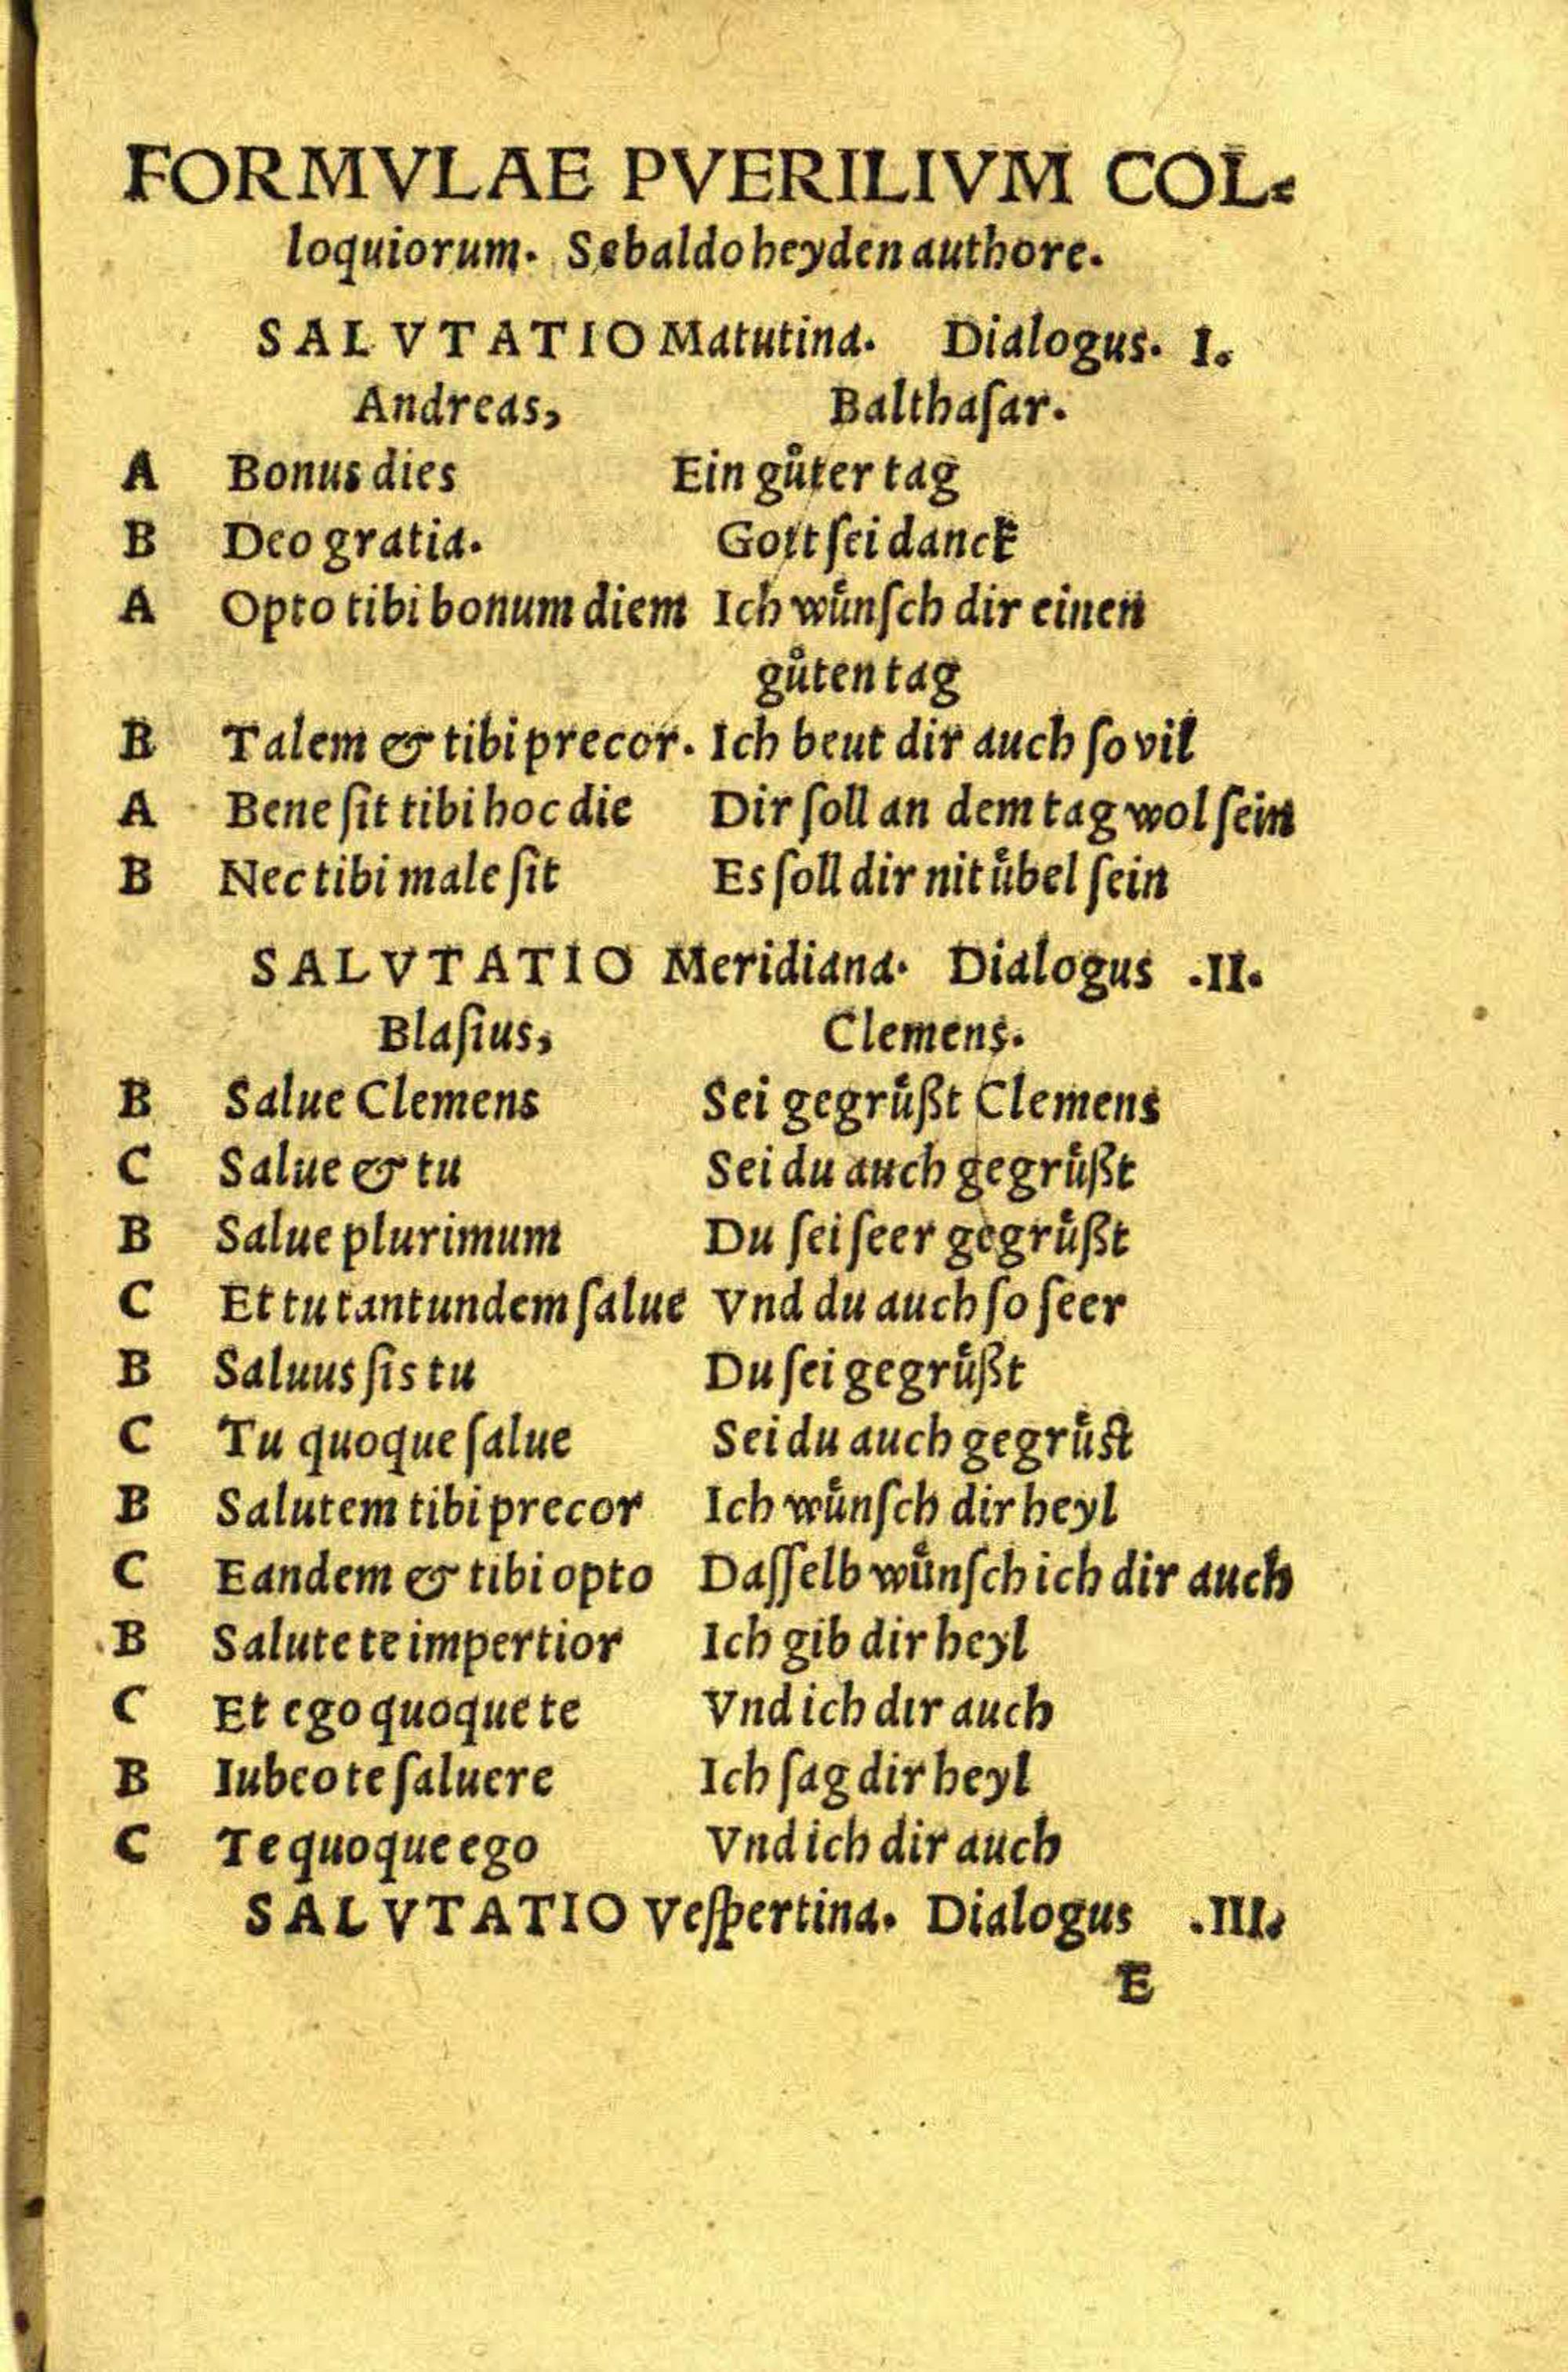 FORMVLAE PVERILIVM COL⸗
loquiorum. Sebaldo heyden authore.
SALVTATIO Matutina. Dialogus. I.
Andreas, Balthaſar.
A Bonus dies Ein gůter tag
B Deo gratia. Gott ſei danck
A Opto tibi bonum diem Ich wůnſch dir einen
gůten tag
B Talem & tibi precor. Ich beut dir auch ſo vil
A Bene ſit tibi hoc die Dir ſoll an dem tag wol ſein
B Nec tibi male ſit Es ſoll dir nit uͤbel ſein
SALVTATIO Meridiana. Dialogus .II.
Blaſius, Clemens.
B Salue Clemens Sei gegruͤßt Clemens
C Salue & tu Sei du auch gegruͤßt
B Salue plurimum Du ſei ſeer gegruͤßt
C Et tu tantundem ſalue Vnd du auch ſo ſeer
B Saluus ſis tu Du ſei gegruͤßt
C Tu quoque ſalue Sei du auch gegruͤſt
B Salutem tibi precor Ich wuͤnſch dir heyl
C Eandem & tibi opto Daſſelb wuͤnſch ich dir auch
B Salute te impertior Ich gib dir heyl
C Et ego quoque te Vnd ich dir auch
B Iubeo te ſaluere Ich ſag dir heyl
C Te quoque ego Vnd ich dir auch
SALVTATIO Veſpertina. Dialogus .III.
E